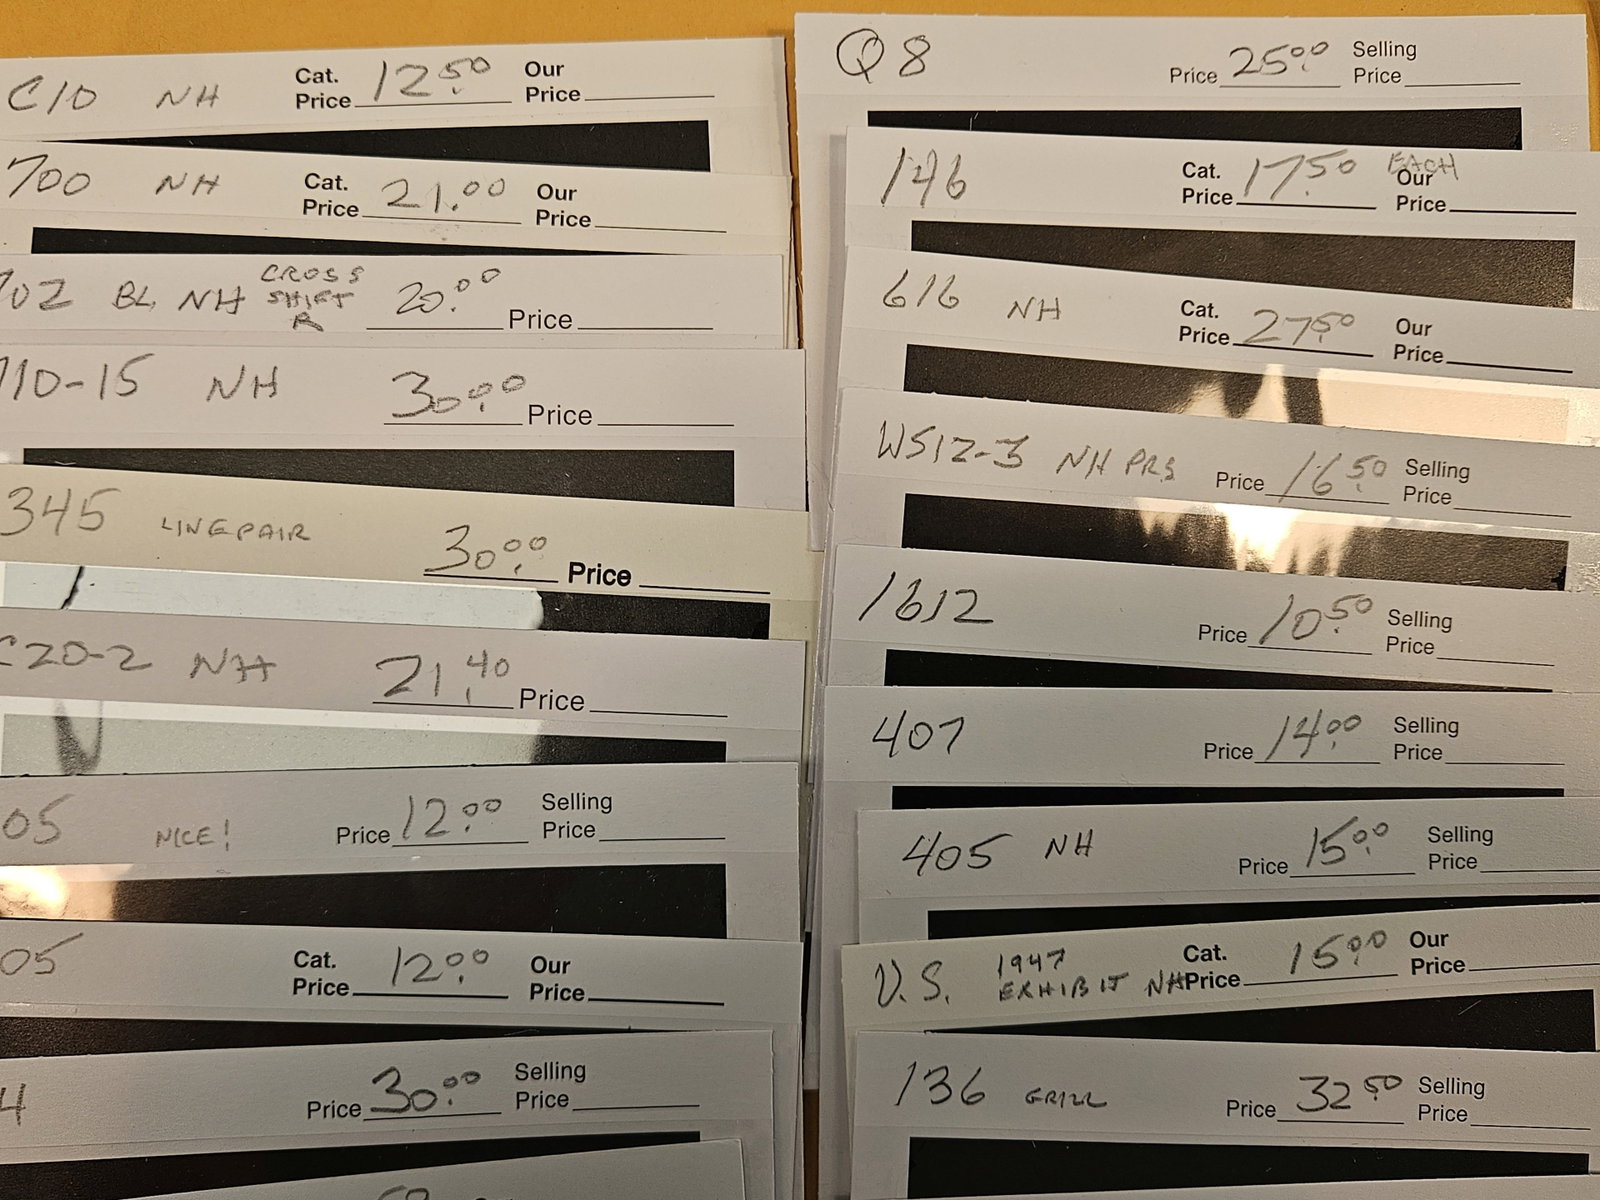 C10 NH Cat. Price 12.50 Our Price
700 NH Cat. Price 21.00 Our Price
702 BL NH CROSS SHIFT R 20.00 Price
710-15 NH 30.00 Price
345 LINE PAIR 30.00 Price
C20-2 NH 21.40 Price
05 NICE! Price 12.00 Selling Price
05 Cat. Price 12.00 Our Price
4 Price 30.00 Selling Price
Q8 Price 25.00 Selling Price
146 Cat. Price 17.50 EACH Our Price
616 NH Cat. Price 27.50 Our Price
WS12-3 NH PRS Price 16.50 Selling Price
1612 Price 10.50 Selling Price
407 Price 14.00 Selling Price
405 NH Price 15.00 Selling Price
U.S. 1947 EXHIBIT NH Cat. Price 15.00 Our Price
136 GRILL Price 32.50 Selling Price